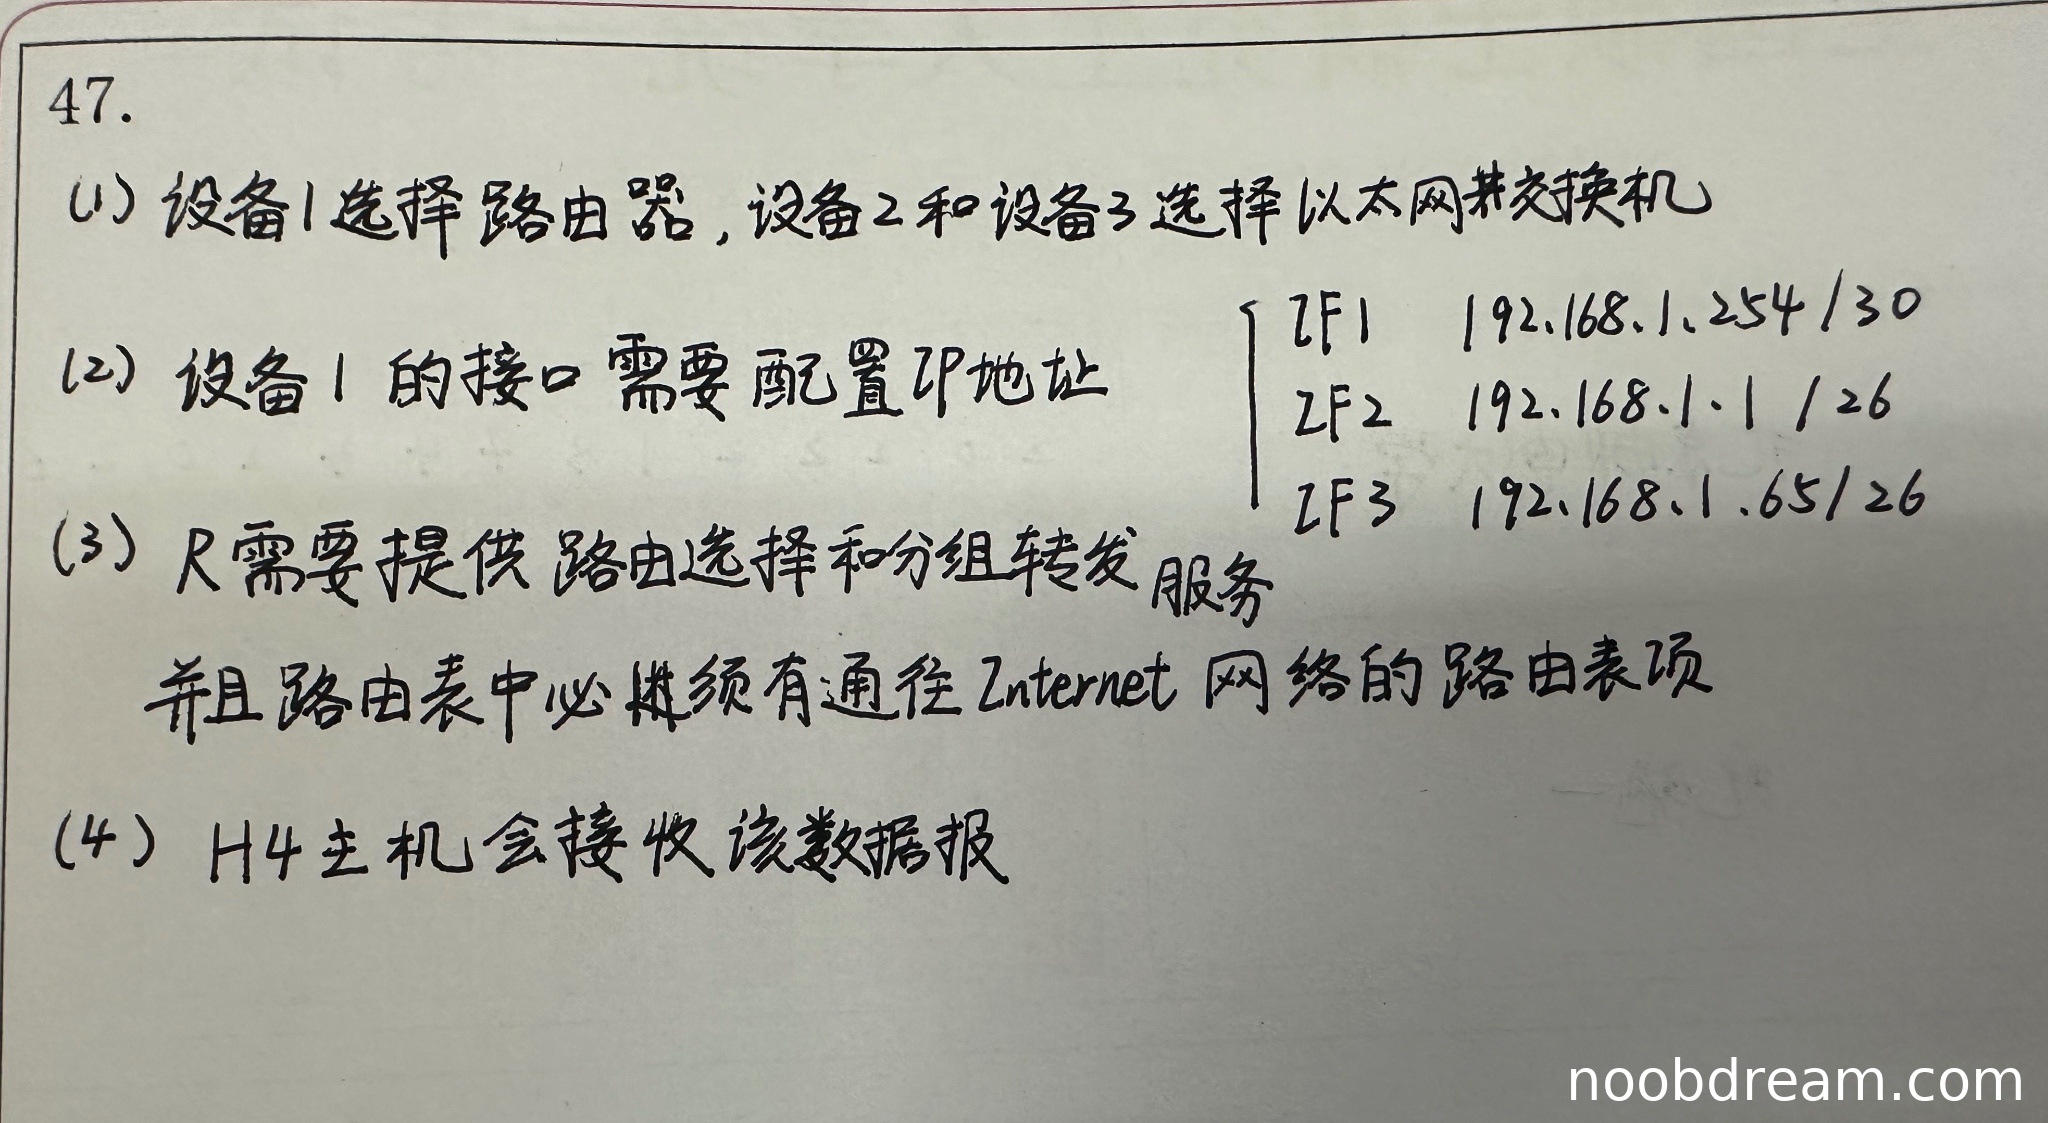 47.
(1) 设备1选择路由器，设备2和设备3选择以太网交换机
(2) 设备1的接口需要配置IP地址
IF1 192.168.1.254/30
IF2 192.168.1.1/26
IF3 192.168.1.65/26
(3) R需要提供路由选择和分组转发服务
并且路由表中必须有通往Internet网络的路由表项
(4) H4主机会接收该数据报
noobdream.com